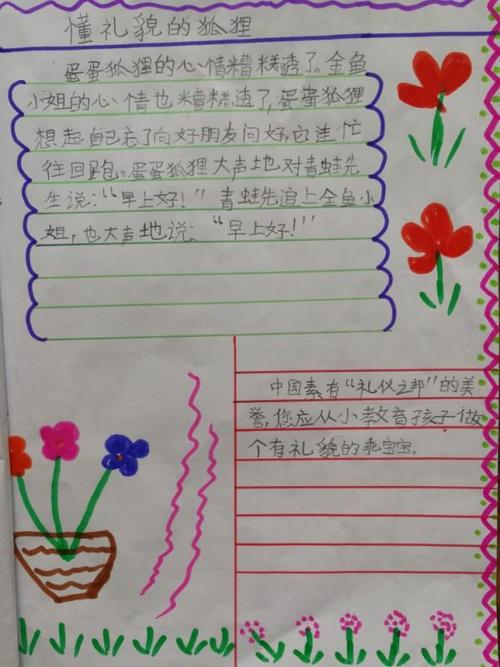 懂礼貌的狐狸
蛋蛋狐狸的心情糟糕透了。金鱼
小姐的心情也糟糕透了,蛋蛋狐狸
想起自己忘了向好朋友问好,它连忙
往回跑。蛋蛋狐狸大声地对青蛙先
生说:“早上好!”青蛙先追上金鱼小
姐,也大声地说:“早上好!”
中国素有“礼仪之邦”的美
誉,您应从小教育孩子做
个有礼貌的乖宝宝。